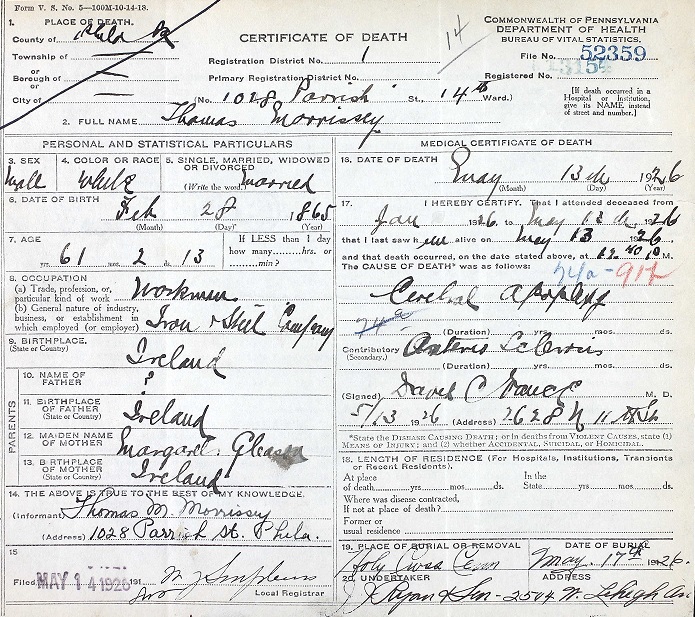 Form V. S. No. 5—100M-10-14-18.
1. PLACE OF DEATH.
County of Phila Pa
Township of
or
Borough of
or
City of
CERTIFICATE OF DEATH
Registration District No. 1
Primary Registration District No.
(No. 1028 Parrish St., 14th Ward.)
14
COMMONWEALTH OF PENNSYLVANIA
DEPARTMENT OF HEALTH
BUREAU OF VITAL STATISTICS.
File No. 52359
Registered No.
[If death occurred in a
Hospital or Institution,
give its NAME instead
of street and number.]
2. FULL NAME Thomas Morrissey
PERSONAL AND STATISTICAL PARTICULARS
3. SEX
Male
4. COLOR OR RACE
White
5. SINGLE, MARRIED, WIDOWED
OR DIVORCED
(Write the word) Married
6. DATE OF BIRTH
Feb 28 1865
(Month) (Day) (Year)
7. AGE
61 yrs. 2 mos. 13
If LESS than 1 day
how many hrs. or
min.?
8. OCCUPATION
(a) Trade, profession, or,
particular kind of work Workman
(b) General nature of industry,
business, or establishment in
which employed (or employer) Iron & Steel Company
9. BIRTHPLACE
(State or Country)
Ireland
PARENTS
10. NAME OF
FATHER
?
11. BIRTHPLACE
OF FATHER
(State or Country)
Ireland
12. MAIDEN NAME
OF MOTHER
Margaret Gleason
13. BIRTHPLACE
OF MOTHER
(State or Country)
Ireland
14. THE ABOVE IS TRUE TO THE BEST OF MY KNOWLEDGE.
(Informant) Thomas M. Morrissey
(Address) 1028 Parrish St. Phila.
15
Filed MAY 14 1926 191
Local Registrar
MEDICAL CERTIFICATE OF DEATH
16. DATE OF DEATH
May 13th 1926
(Month) (Day) (Year)
17. I HEREBY CERTIFY, That I attended deceased from
Jan 1926 to May 13th 1926
that I last saw him alive on May 13 1926
and that death occurred, on the date stated above, at 12 40 M.
The CAUSE OF DEATH* was as follows:
74a-912
Cerebral Apoplexy
74a
(Duration) yrs. mos. ds.
Contributory Arterio Sclerosis
(Secondary.)
(Duration) yrs. mos. ds.
(Signed) David C M. D.
5/13 1926 (Address) 2628 N 11th St
*State the DISEASE CAUSING DEATH; or in deaths from VIOLENT CAUSES, state (1)
MEANS OF INJURY; and (2) whether ACCIDENTAL, SUICIDAL, or HOMICIDAL.
18. LENGTH OF RESIDENCE (For Hospitals, Institutions, Transients
or Recent Residents).
At place
of death yrs. mos. ds.
In the
State yrs. mos. ds.
Where was disease contracted,
If not at place of death?
Former or
usual residence
19. PLACE OF BURIAL OR REMOVAL
Holy Cross Cem
DATE OF BURIAL
May 17th 1926.
20. UNDERTAKER
J J Ryan & Son
ADDRESS
2544 W. Lehigh Av